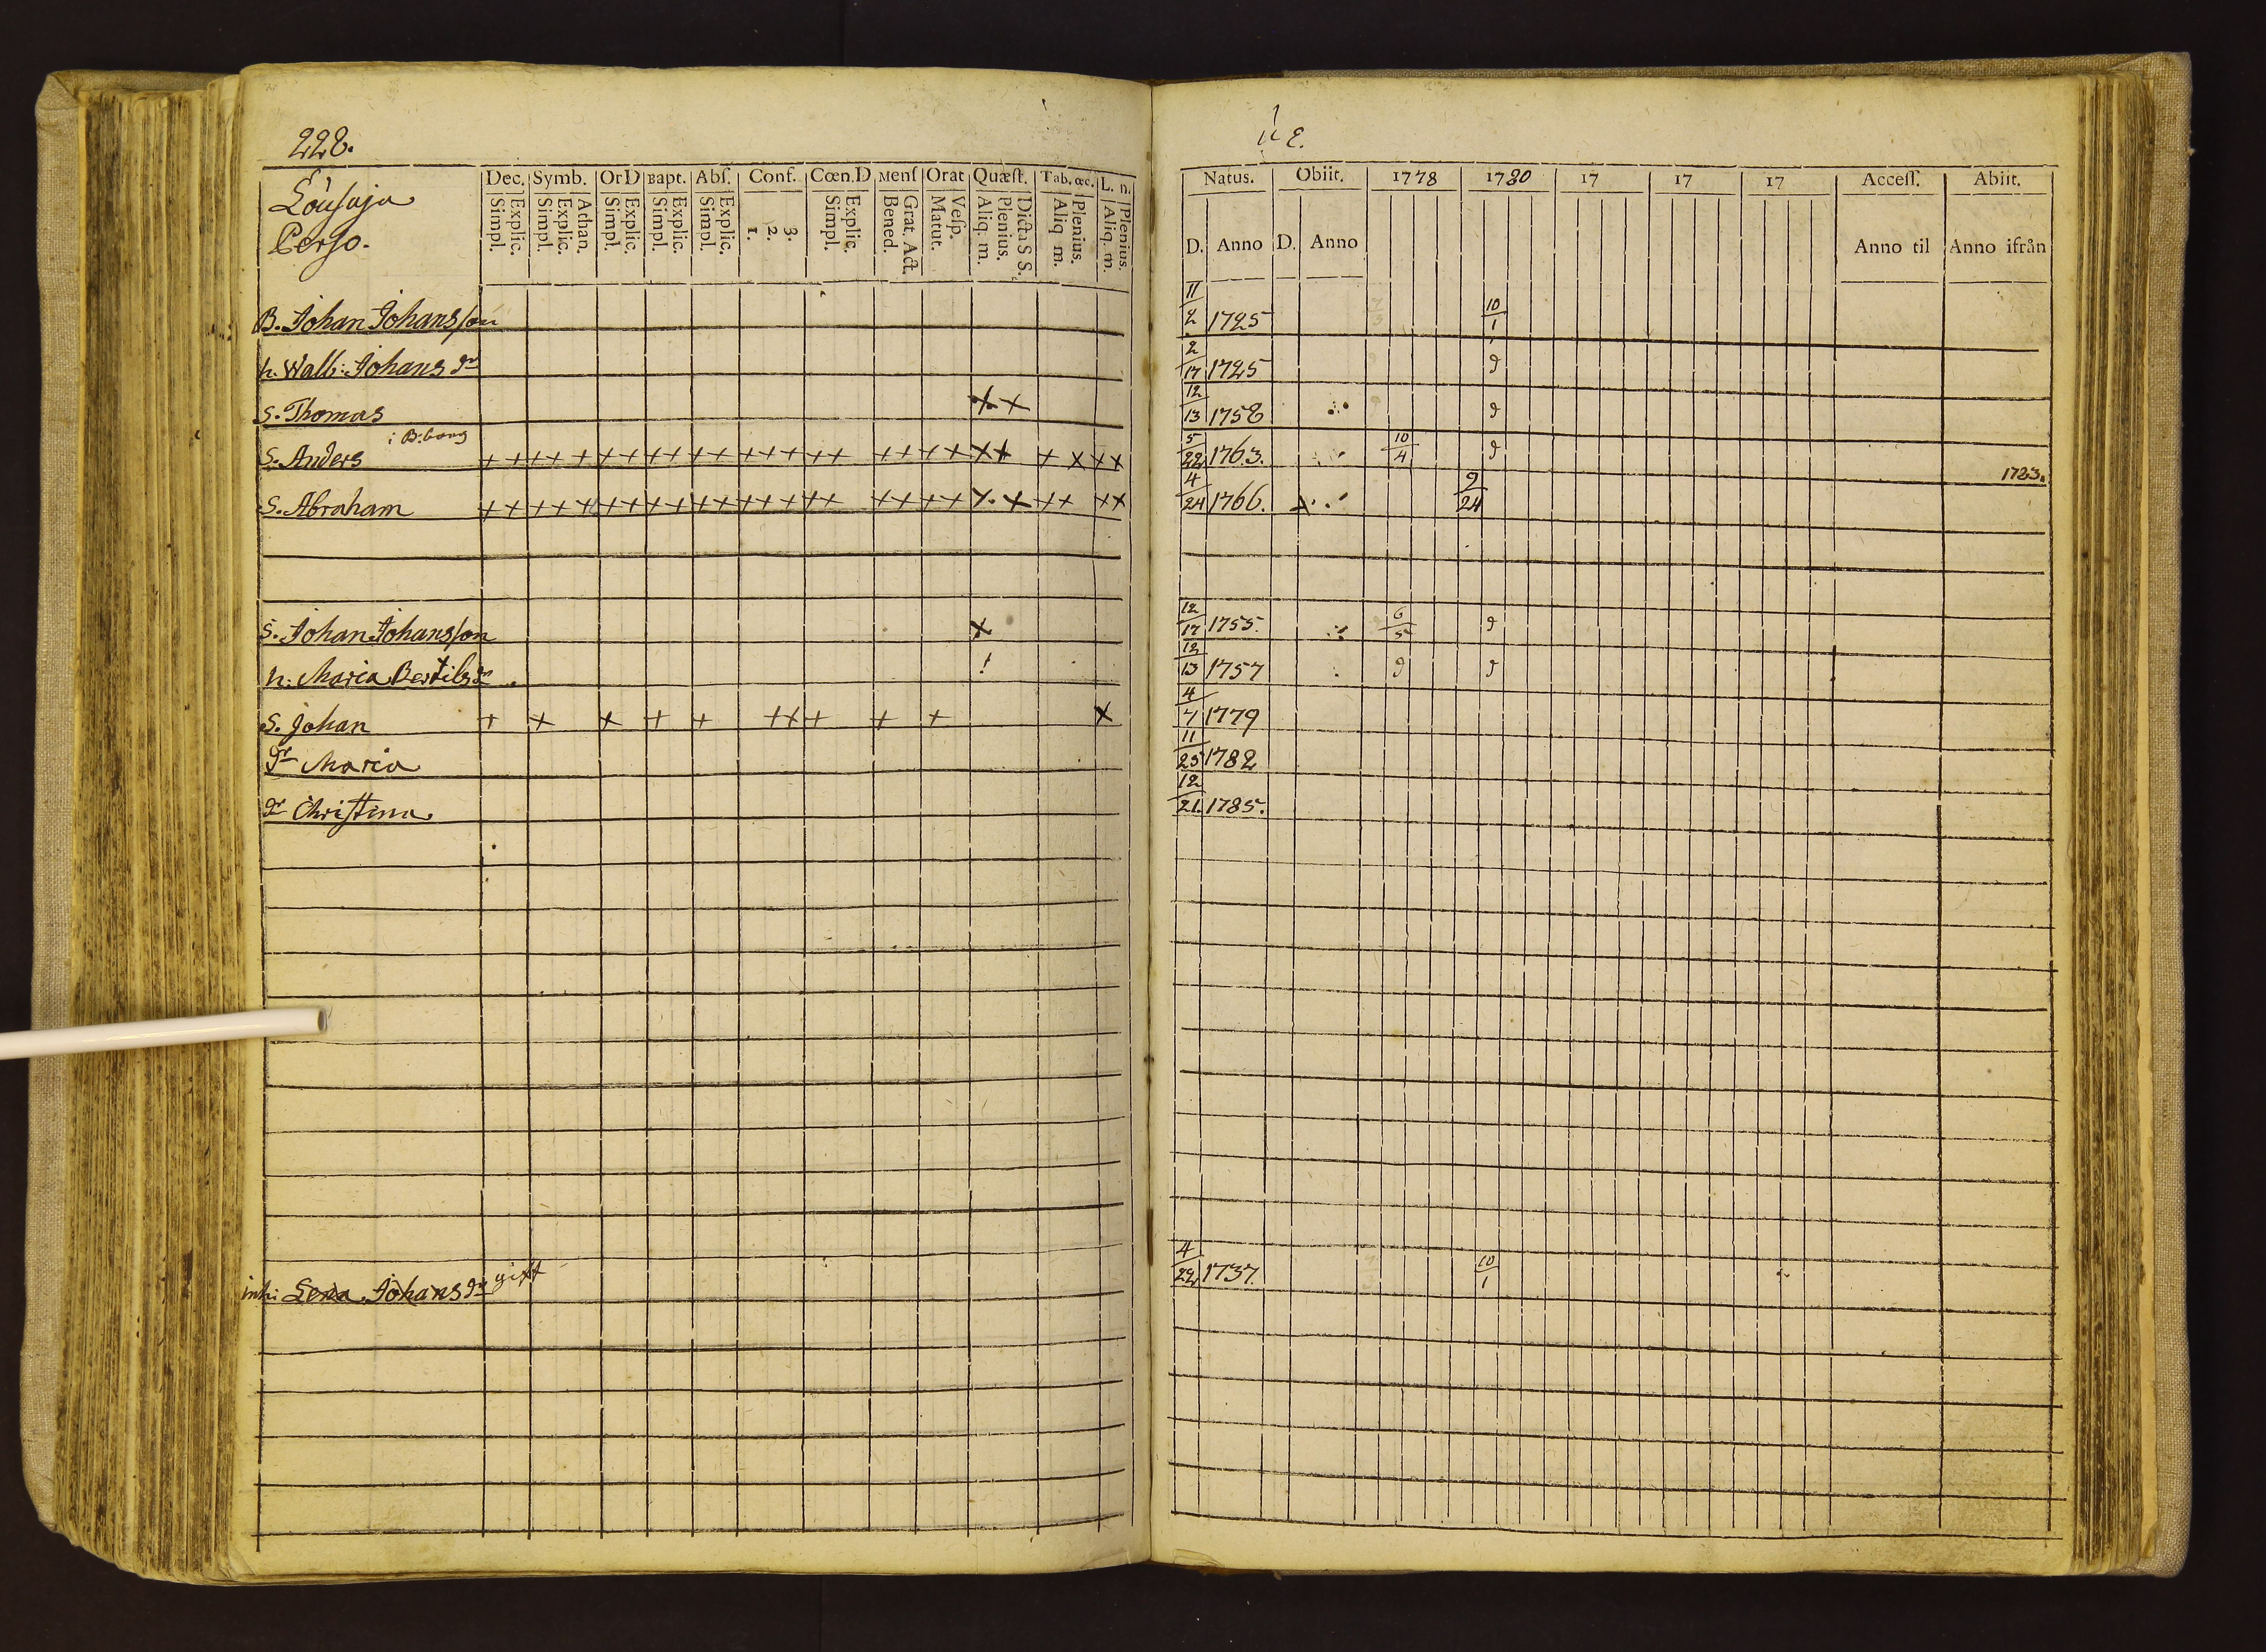 228.
Lousaja
Perso.
Dec. Symb. OrD Bapt. Abſ. Conf. Cœn.D Menſ Orat Quæſt. Tab. œc. L. n.
Explic. Simpl. Athan. Explic. Simpl. Explic. Simpl. Explic. Simpl. Explic. Simpl. 3. 2. 1. Explic. Simpl. Grat. Act. Bened. Veſp. Matut. Dicta S S. Plenius. Aliq. m. Plenius. Aliq m. Plenius. Aliq. m.
Natus. Obiit. 1778 1780 17 17 17 Acceſſ. Abiit.
D. Anno D. Anno Anno til Anno ifrån
B. Johan Johansson 11/2 1725 7/3 10/1
h. Walb: Johans dr 2/17 1725
S. Thomas ++ 12/13 1758
i B:borg
S. Anders + + + + + + + + + + + + + + + + + + + + + + + x + + 5/22 1763. 10/4
1783.
S. Abraham + + + + + + + + + + + + + + + + + + + + + x + + + + + 4/24 1766. 9/24
S. Johan Johansson x 12/17 1755. 6/5
h. Maria Bertils dr 12/13 1757
S. Johan + + + + + + + + + + x 4/7 1779
dr Maria 11/25 1782
dr Christina 12/21. 1785.
inh: Lena Johans dr gift 4/22 1737. 10/1